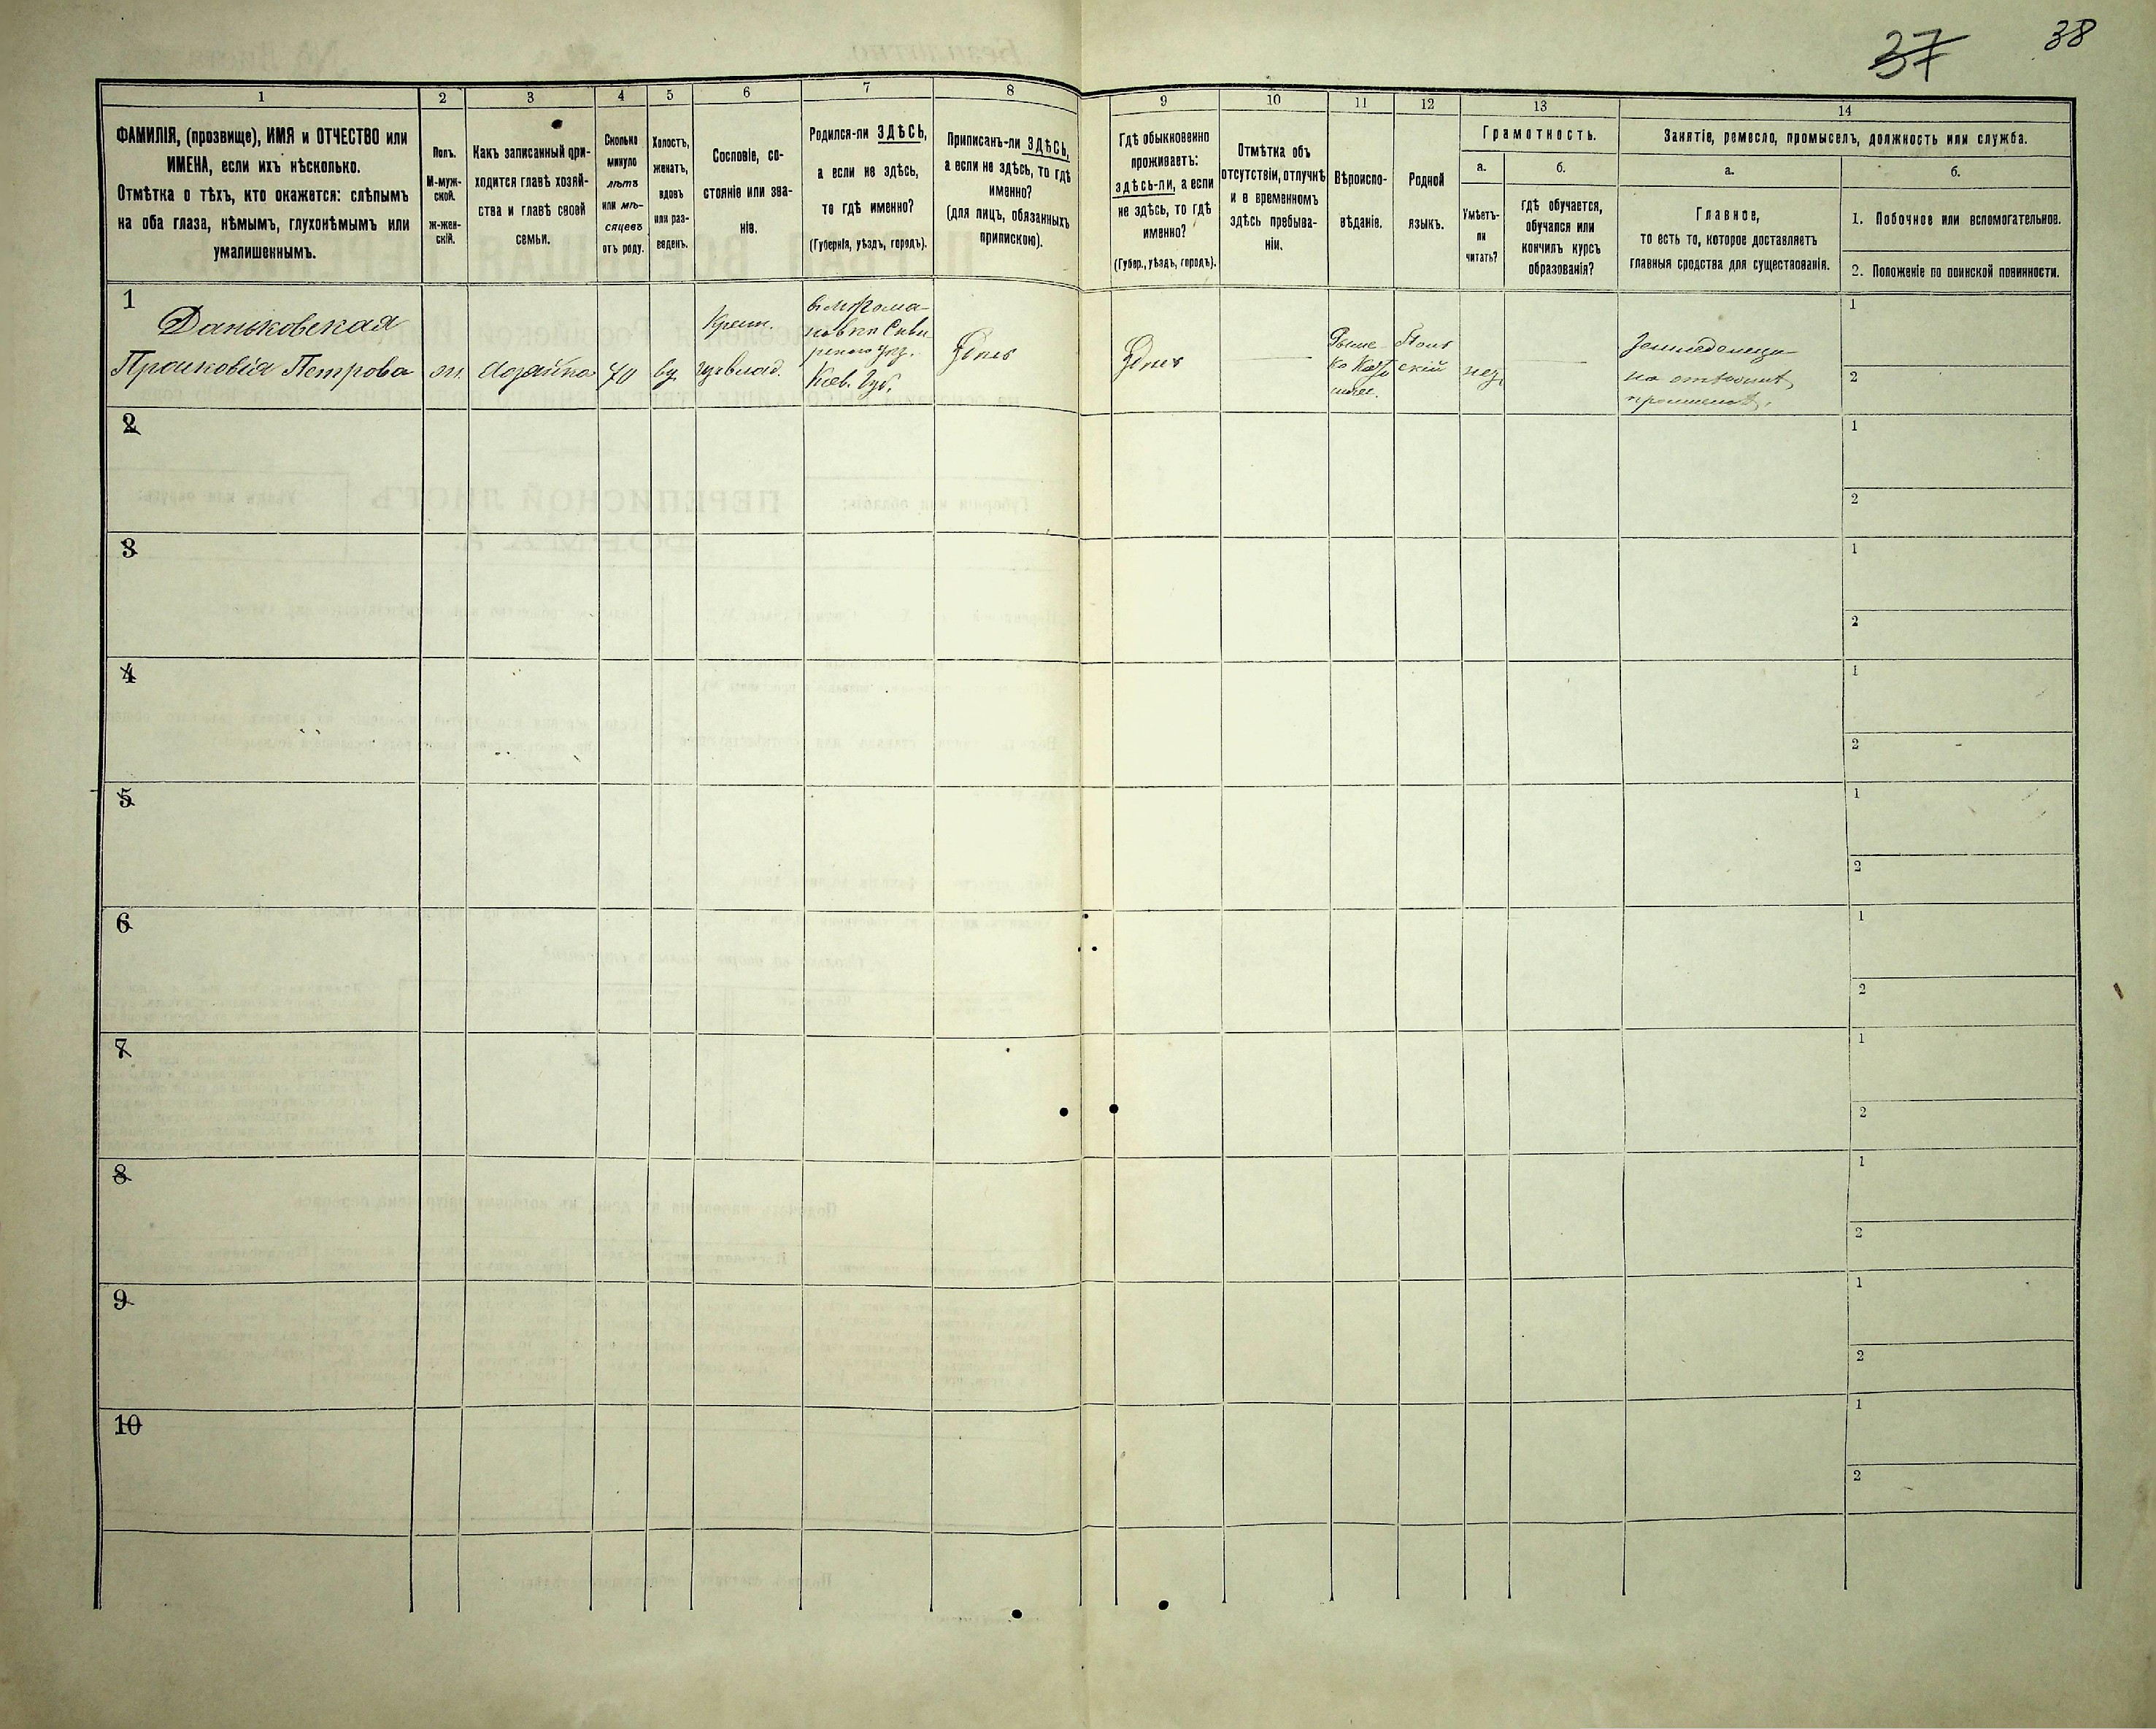 37 38
1 2 3 4 5 6 7 8 9 10 11 12 13 14
ФАМИЛІЯ, (прозвище), ИМЯ и ОТЧЕСТВО или
ИМЕНА, если ихъ нѣсколько.
Отмѣтка о тѣхъ, кто окажется: слѣпымъ
на оба глаза, нѣмымъ, глухонѣмымъ или
умалишеннымъ.
Полъ.
М-муж-
ской.
ж-жен-
скій.
Какъ записанный при-
ходится главѣ хозяй-
ства и главѣ своей
семьи.
Сколько
минуло
лѣтъ
или мѣ-
сяцевъ
отъ роду.
Холостъ,
женатъ,
вдовъ
или раз-
веденъ.
Сословіе, со-
стояніе или зва-
ніе.
Родился-ли ЗДѢСЬ,
а если не здѣсь,
то гдѣ именно?
(Губернія, уѣздъ, городъ).
Приписанъ-ли ЗДѢСЬ,
а если не здѣсь, то гдѣ
именно?
(для лицъ, обязанныхъ
припискою).
Гдѣ обыкновенно
проживаетъ:
здѣсь-ли, а если
не здѣсь, то гдѣ
именно?
(Губер., уѣздъ, городъ).
Отмѣтка объ
отсутствіи, отлучкѣ
и о временномъ
здѣсь пребыва-
ніи.
Вѣроиспо-
вѣданіе.
Родной
языкъ.
Грамотность.
а.
Умѣетъ-
ли
читать?
б.
гдѣ обучается,
обучался или
кончилъ курсъ
образованія?
Занятіе, ремесло, промыселъ, должность или служба.
а.
Главное,
то есть то, которое доставляетъ
главныя средства для существованія.
б.
1. Побочное или вспомогательное.
2. Положеніе по воинской повинности.
1
Даньковская
Прасковія Петрова
хозяйка
70
вд
Крест.
Кіев. Губ.
Здѣсь
Здѣсь
Римс-
ко Като
личес.
Поль
скій
нез.
1
2
2
1
2
3
1
2
4
1
2
5
1
2
6
1
2
7
1
2
8
1
2
9
1
2
10
1
2